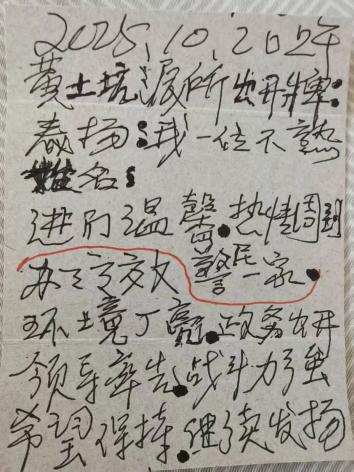 2025.10.20 2年
黄土坑派所出册牌:
表扬:我一位不熟
姓名:
进门温馨.热情周到
办事高效 警民一家.
环境丁亮.政务开
领导率先.战斗力强
希望保持.继续发扬